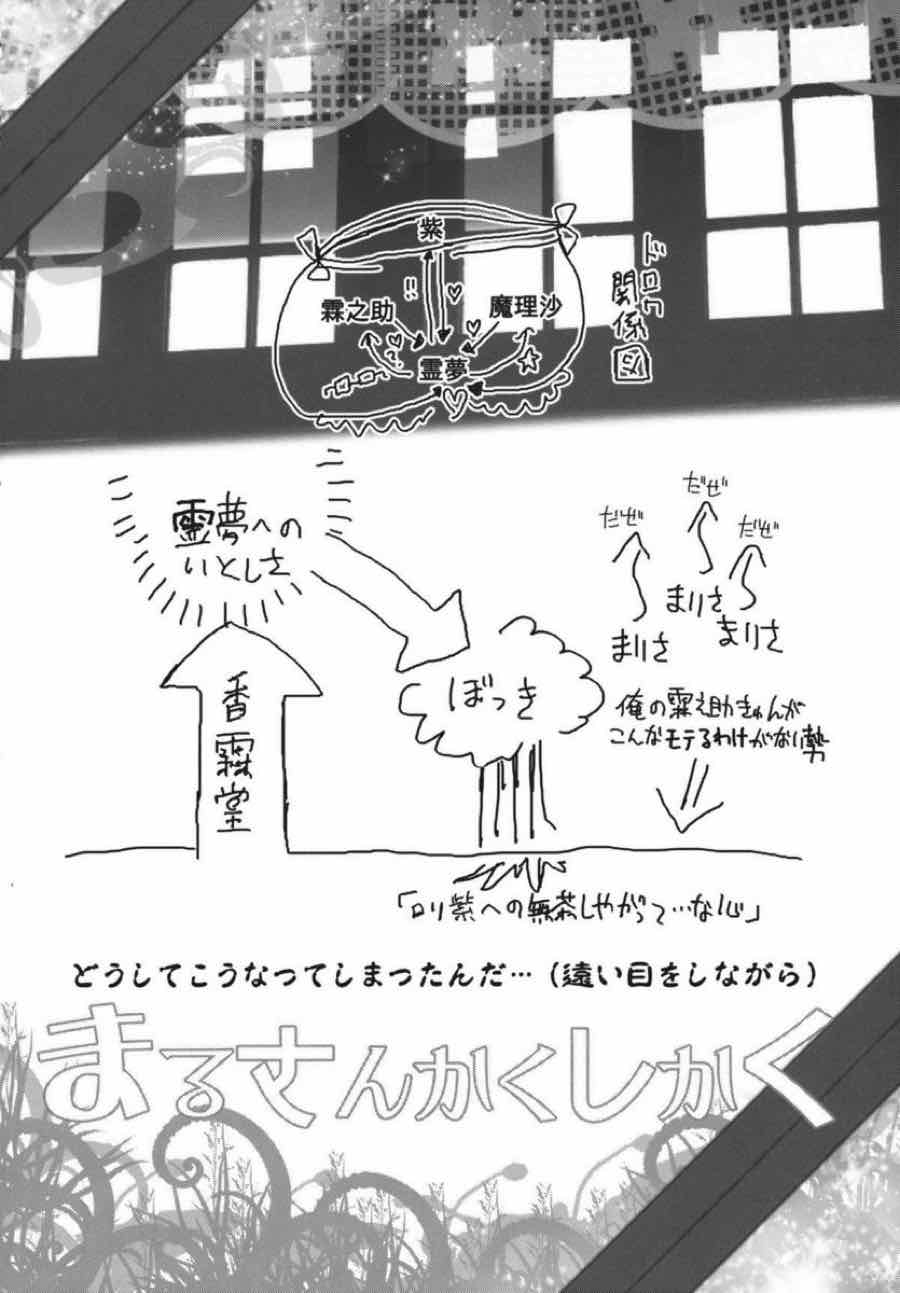 紫
霖之助
魔理沙
霊夢
!!
♡
♡
♡?
☆
♡
ドロワ
関係図
霊夢への
いとしさ
香霖堂
ぼっき
だぜ
だぜ
だぜ
まりさ
まりさ
まりさ
俺の霖之助きゅんが
こんなモテるわけがない勢
「ロリ紫への無茶しやがって…な心」
どうしてこうなってしまったんだ…（遠い目をしながら）
まるさんかくしかく